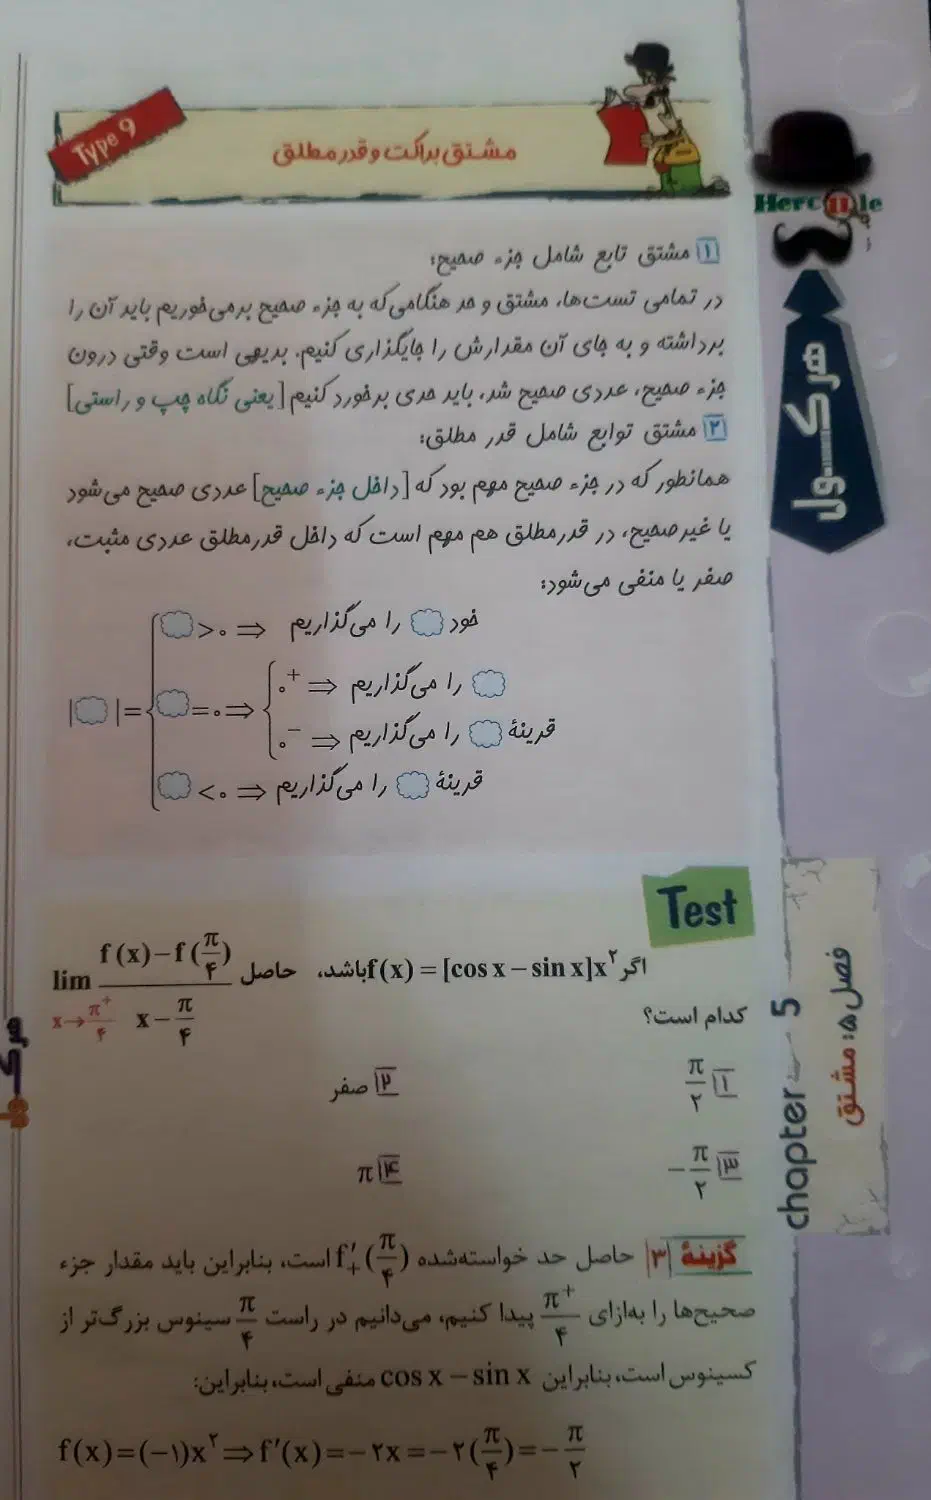 Type 9
مشتق براکت و قدر مطلق
Hercule
هرکول
۱ مشتق تابع شامل جزء صحیح:
در تمامی تست‌ها، مشتق و حد هنگامی که به جزء صحیح برمی‌خوریم باید آن را
برداشته و به جای آن مقدارش را جایگذاری کنیم. بدیهی است وقتی درون
جزء صحیح، عددی صحیح شد، باید حدی برخورد کنیم [یعنی نگاه چپ و راستی]
۲ مشتق توابع شامل قدر مطلق:
همانطور که در جزء صحیح مهم بود که [داخل جزء صحیح] عددی صحیح می‌شود
یا غیر صحیح، در قدر مطلق هم مهم است که داخل قدر مطلق عددی مثبت،
صفر یا منفی می‌شود:
> ۰ ⇒ خود را می‌گذاریم
| | = = ۰ ⇒ ۰⁺ ⇒ را می‌گذاریم
۰⁻ ⇒ قرینهٔ را می‌گذاریم
< ۰ ⇒ قرینهٔ را می‌گذاریم
Test
اگر f(x) = [cos x − sin x]x^۲ باشد، حاصل lim x→π/۴⁺ (f(x) − f(π/۴)) / (x − π/۴)
کدام است؟
۱ π/۲
۲ صفر
۳ −π/۲
۴ π
گزینهٔ ۳ حاصل حد خواسته‌شده f′₊(π/۴) است، بنابراین باید مقدار جزء
صحیح‌ها را به‌ازای π⁺/۴ پیدا کنیم، می‌دانیم در راست π/۴ سینوس بزرگ‌تر از
کسینوس است، بنابراین cos x − sin x منفی است، بنابراین:
f(x) = (−۱)x^۲ ⇒ f′(x) = −۲x = −۲(π/۴) = −π/۲
chapter 5
فصل ۵: مشتق
هرکول